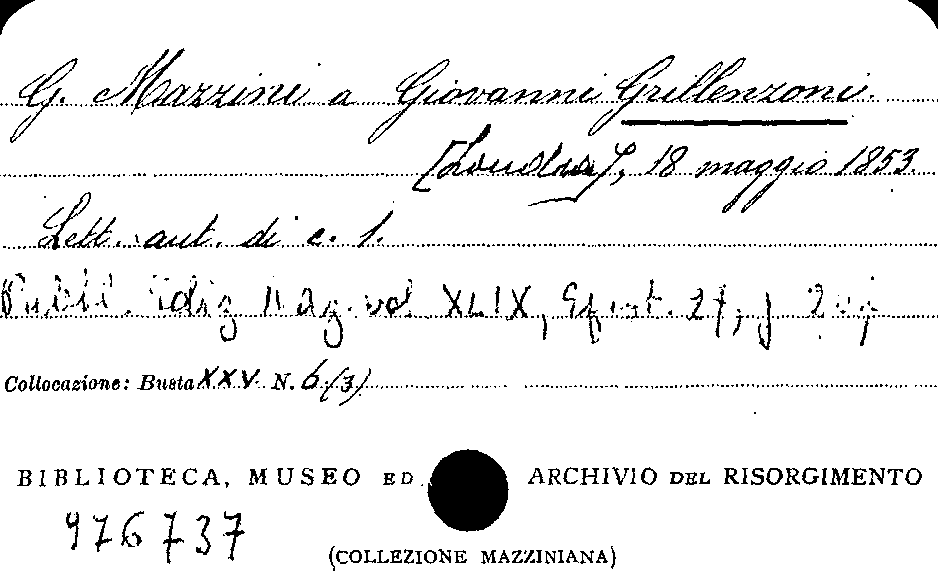 G. Mazzini a Giovanni Grillenzoni.
[Londra], 18 maggio 1853.
Lett. aut. di c. 1.
Pubbl. Ediz Naz. vol XLIX, Epist.
Collocazione: Busta XXV N. 6 (3)
BIBLIOTECA, MUSEO ED ARCHIVIO DEL RISORGIMENTO
976737
(COLLEZIONE MAZZINIANA)